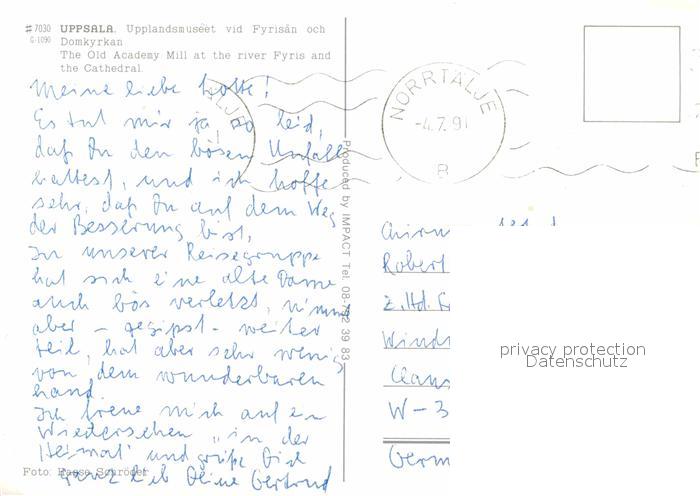 #7030 UPPSALA. Upplandsmuséet vid Fyrisån och
G-1090 Domkyrkan
The Old Academy Mill at the river Fyris and
the Cathedral.
Meine liebe Lotte!
Es tut mir ja so leid,
daß Du den bösen Unfall
hattest, und ich hoffe
sehr, daß Du auf dem Weg
der Besserung bist,
In unserer Reisegruppe
hat sich eine alte Dame
auch bös verletzt, nimmt
aber – gegipst – weiter
teil, hat aber sehr wenig
von dem wunderbaren
Land.
Ich freue mich auf ein
Wiedersehen "in der
Heimat" und grüße Dich
ganz lieb Deine Gertrud
Foto: Hasse Schröder
Produced by IMPACT Tel. 08-792 39 83
NORRTÄLJE
-4.7.91
B
LJE
Robert
z.Hd.
Wind
Claus
W-3
Germ
privacy protection
Datenschutz